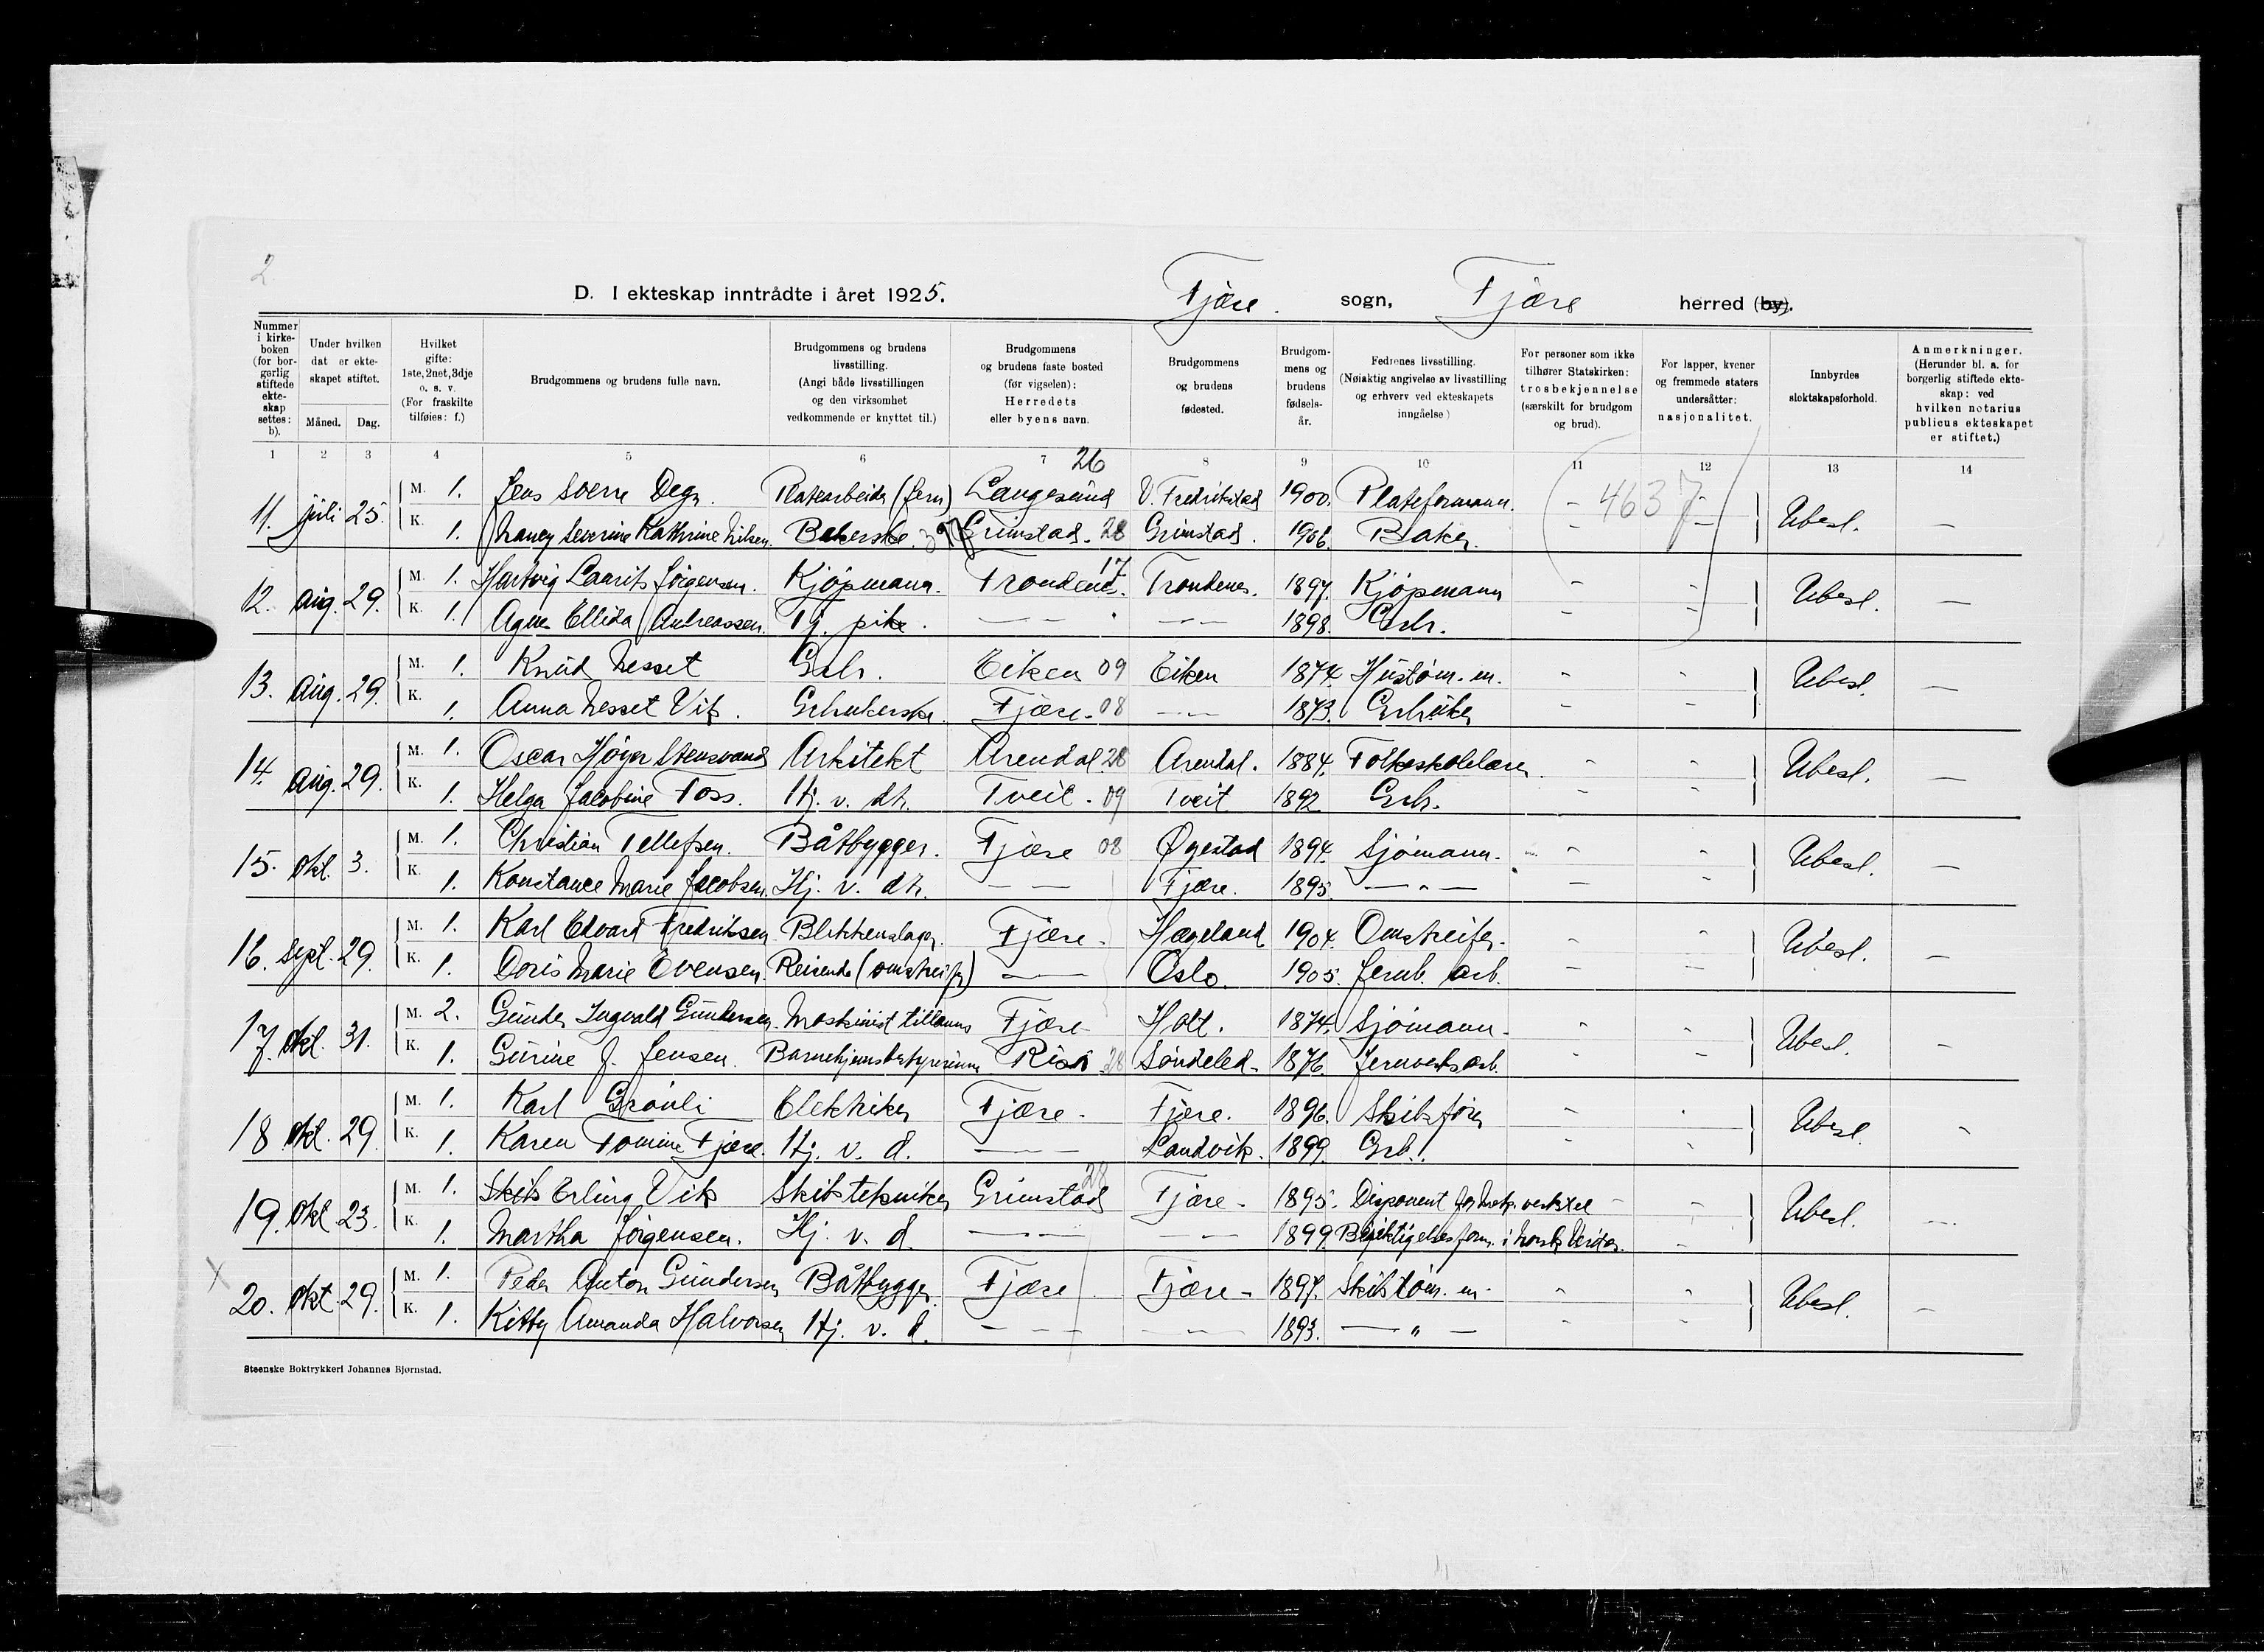 2
D. I ekteskap inntrådte i året 1925. Fjære. sogn, Fjære herred (by).
Nummer i kirkeboken (for borgerlig stiftede ekteskap settes: b). | Under hvilken dat er ekteskapet stiftet. Måned. Dag. | Hvilket gifte: 1ste, 2net, 3dje o. s. v. (For fraskilte tilføies: f.) | Brudgommens og brudens fulle navn. | Brudgommens og brudens livsstilling. (Angi både livsstillingen og den virksomhet vedkommende er knyttet til.) | Brudgommens og brudens faste bosted (før vigselen): Herredets eller byens navn. | Brudgommens og brudens fødested. | Brudgommens og brudens fødselsår. | Fedrenes livsstilling. (Nøiaktig angivelse av livsstilling og erhverv ved ekteskapets inngåelse) | For personer som ikke tilhører Statskirken: trosbekjennelse (særskilt for brudgom og brud). | For lapper, kvener og fremmede staters undersåtter: nasjonalitet. | Innbyrdes slektskapsforhold. | Anmerkninger. (Herunder bl. a. for borgerlig stiftede ekteskap: ved hvilken notarius publicus ekteskapet er stiftet.)
1 2 3 4 5 6 7 8 9 10 11 12 13 14
26
11. juli 25. M. 1. Jens Sverre Degn. Platearbeider (jern) Langesund V. Fredrikstad 1900. Plateformann. - 4637 - Ubesl. —
K. 1. Nancy Severine Kathrine Nilsen. Bakerske. Grimstad. 28 Grimstad. 1906. Baker. - —
17
12. aug. 29. M. 1. Hartvig Laurits Jörgensen. Kjöpmann. Trondenes. Trondenes. 1897. Kjöpmann - - Ubesl. —
K. 1. Agnes Ellida Andreassen. Tj. pike. — — — — 1898. Grbr. - -
13. aug. 29. M. 1. Knud Nesset Grbr. Eiken 09 Eiken 1874. Hustöm. m. - - Ubesl. —
K. 1. Anna Nesset Vik. Fjære. 08 — 1873. - -
14. aug. 29. M. 1. Oscar Höyer Stensvand Arkitekt Arendal. 28 Arendal. 1884. Folkeskolelærer - - Ubesl. —
K. 1. Helga Jacobine Foss. Hj. v. dh. Tveit. 09 Tveit 1892 Grbr. - -
15. Okt. 3. M. 1. Christian Tellefsen. Båtbygger. Fjære 08 Øyestad 1894. Sjömann. - - Ubesl. —
K. 1. Konstance Marie Jacobsen. Hj. v. dh. — — Fjære. 1895. — " — - -
16. Sept. 29. M. 1. Karl Edvard Fredriksen Blikkenslager. Fjære. Hægeland 1904. Omstreifer. - - Ubesl. —
K. 1. Doris Marie Evensen. Reisende (omstreifer) — Oslo. 1905. Jernb. arb. - —
17. Okt. 31. M. 2. Gunder Ingvald Gundersen. Maskinist tillands Fjære Holt. 1874. Sjömann. - - Ubesl. -
K. 1. Gurine J. Jensen. Barnehjemsbestyrerinne Risör 28 Söndeled. 1876. Jernverksarb. - -
18 Okt. 29. M. 1. Karl Grönli Elektriker Fjære. Fjære. 1896. Skibsförer - - Ubesl. -
K. 1. Karen Tomine Fjære. Hj. v. d. — — Landvik. 1899. Grb. - -
28
19. Okt 23. M. 1. Skib Erling Vik Skibstekniker Grimstad Fjære. 1895. Disponent for mek. verksted - - Ubesl. —
K. 1. Martha Jörgensen. Hj. v. d. — — — — 1899. Besiktigelsesform. i Norsk Veritas. -
X
20. Okt 29. M. 1. Peder Anton Gundersen Båtbygger. Fjære Fjære - 1897. Skibstöm. m. - - Ubesl. -
K. 1. Kitty Amanda Halvorsen Hj. v. d. — — — — 1893. — " — - -
Steenske Boktrykkeri Johannes Bjørnstad.